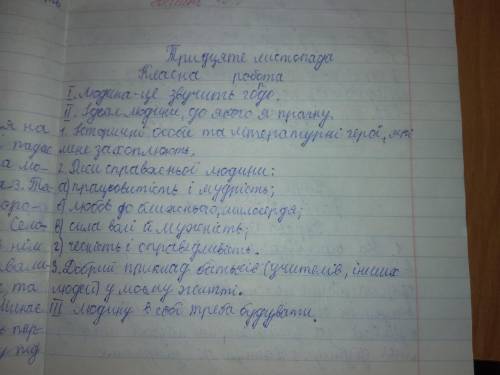 Тридцяте листопада
Класна робота
І. Людина - це звучить гордо.
ІІ. Ідеал людини, до якого я прагну.
я на 1. Історичні особи та літературні герої, які
падає мене захоплюють.
а мо- 2. Риси справжньої людини:
а) працьовитість і мудрість;
б) любов до ближнього, милосердя;
Село- в) сила волі й мужність;
ним г) чесність і справедливать.
вали- 3. Добрий приклад батьків (учителів, інших
та людей) у моєму житті.
ІІІ Людину в собі треба будувати.